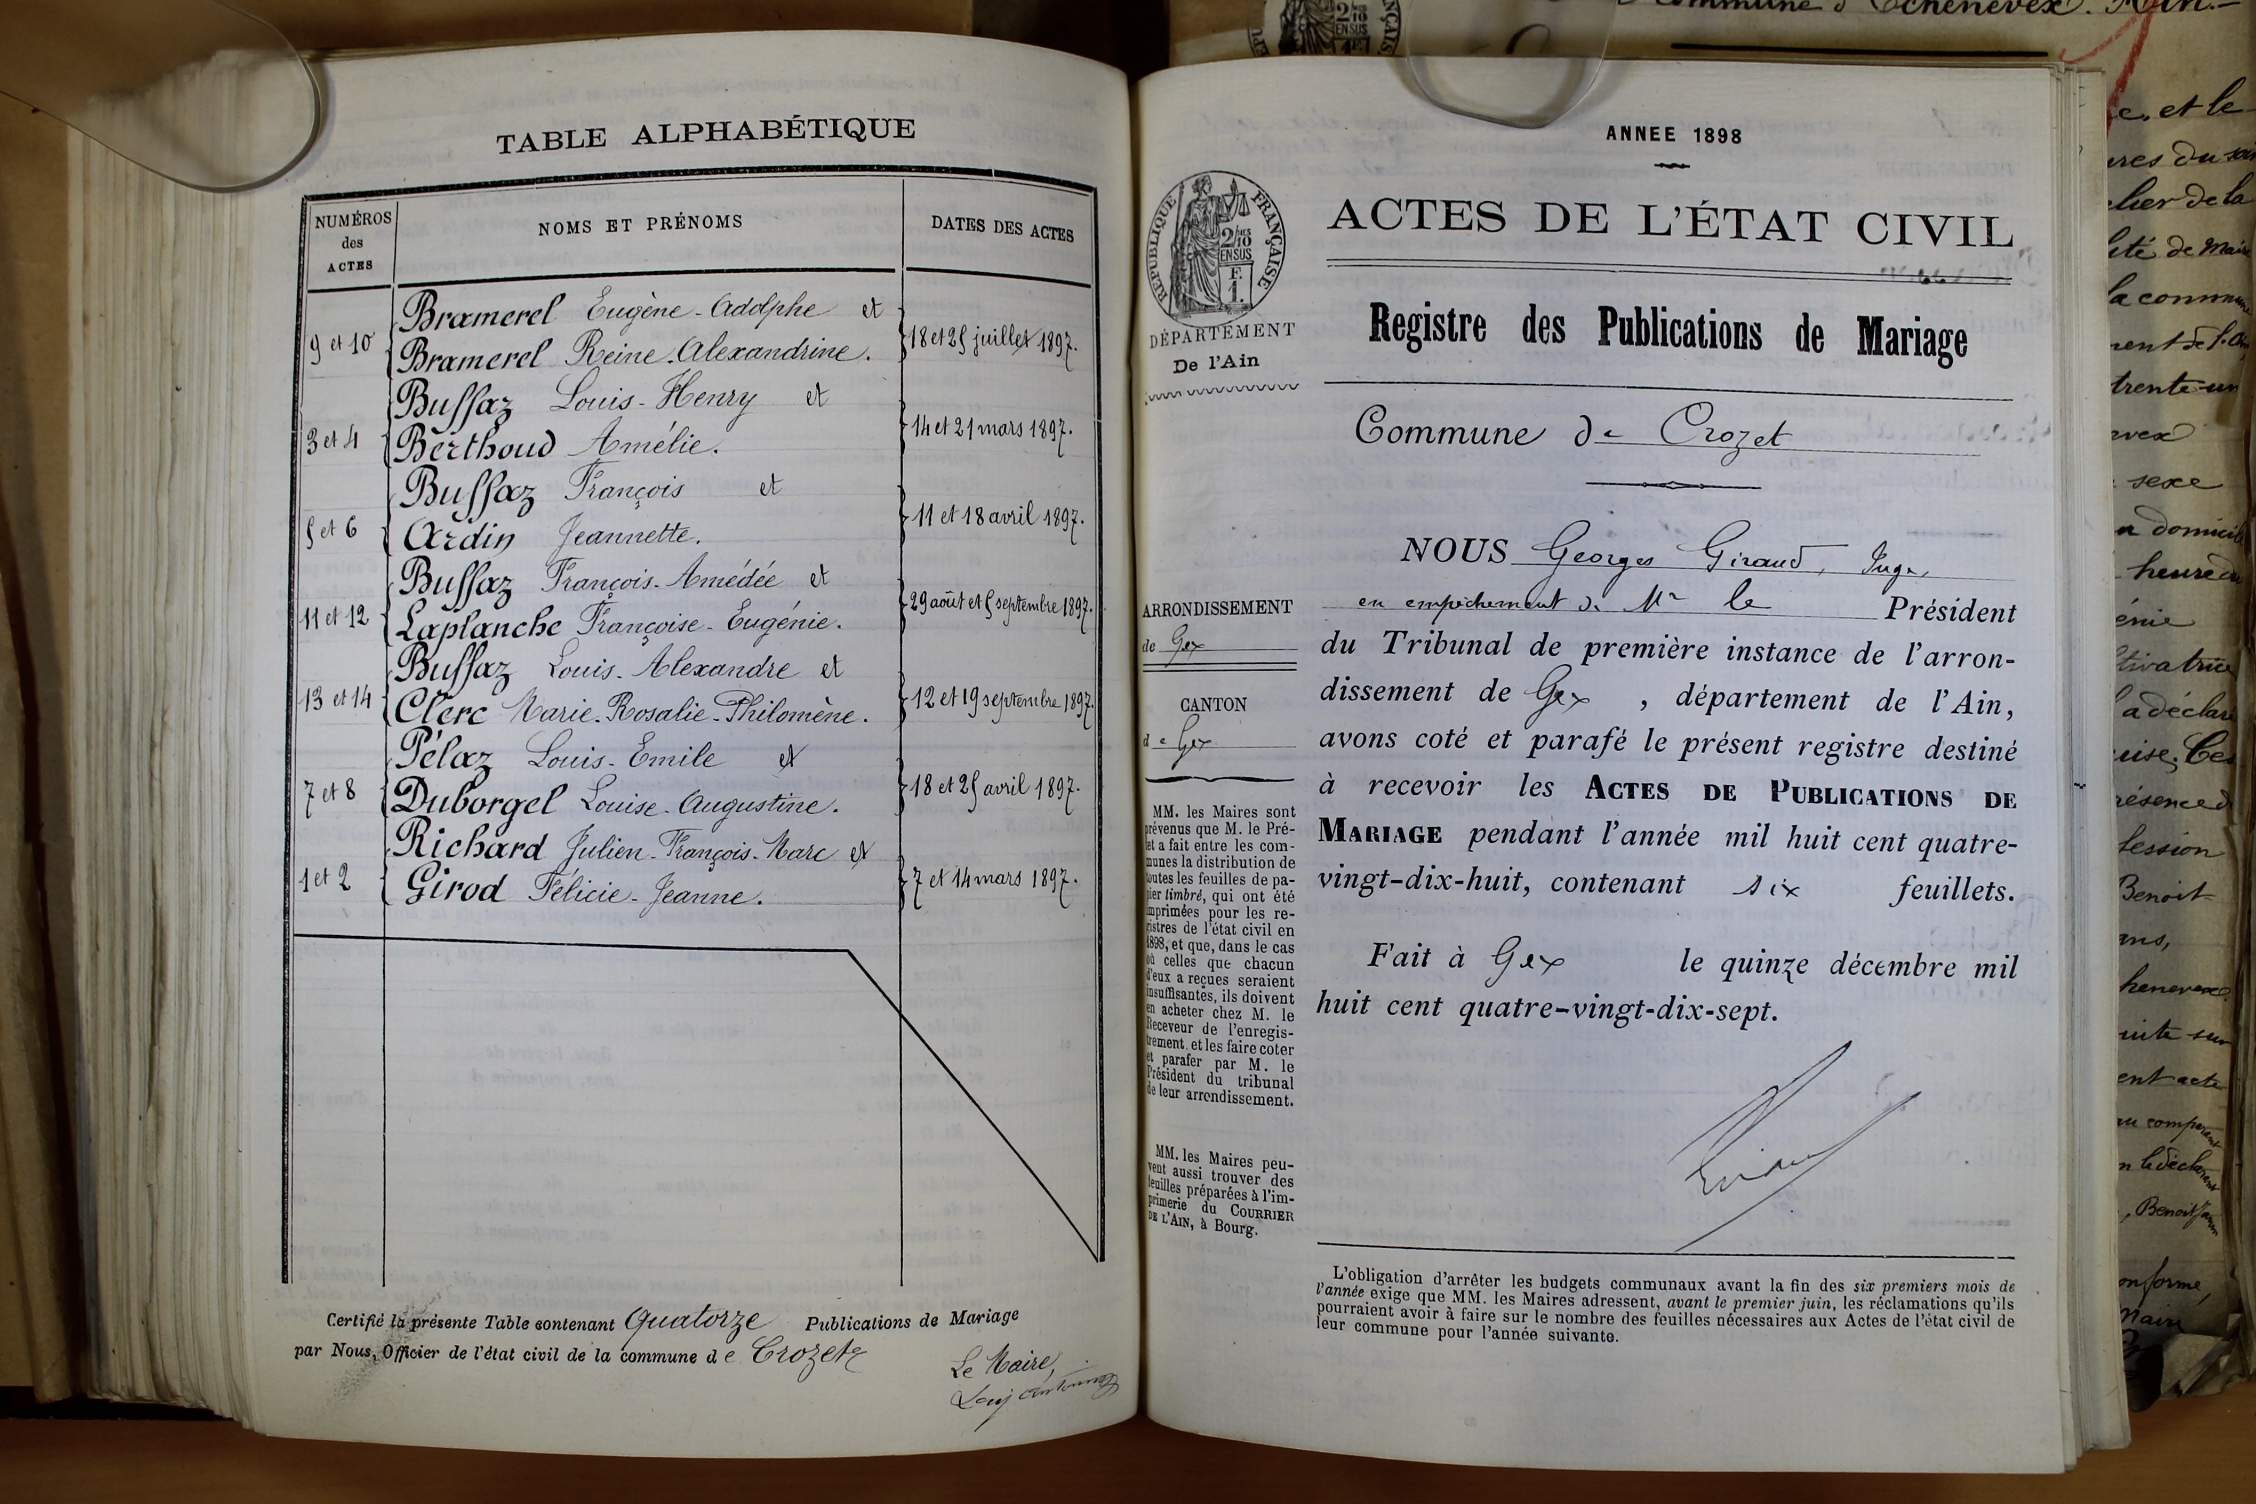 TABLE ALPHABÉTIQUE
NUMÉROS
des
ACTES
NOMS ET PRÉNOMS
DATES DES ACTES
9 et 10
Bramerel Eugène-Adolphe et
Bramerel Reine-Alexandrine.
18 et 25 juillet 1897.
3 et 4
Buffaz Louis-Henry et
Berthoud Amélie.
14 et 21 mars 1897.
5 et 6
Buffaz François et
Ardin Jeannette.
11 et 18 avril 1897.
11 et 12
Buffaz François-Amédée et
Laplanche Françoise-Eugénie.
29 août et 5 septembre 1897.
13 et 14
Buffaz Louis-Alexandre et
Clerc Marie-Rosalie-Philomène.
12 et 19 septembre 1897.
7 et 8
Pélaz Louis-Emile et
Duborgel Louise-Augustine.
18 et 25 avril 1897.
1 et 2
Richard Julien-François-Marc et
Girod Félicie-Jeanne.
7 et 14 mars 1897.
Certifié la présente Table contenant Quatorze Publications de Mariage
par Nous, Officier de l'état civil de la commune de Crozet
Le Maire,
ANNEE 1898
RÉPUBLIQUE FRANÇAISE
2/10
EN SUS
F.
1.
ACTES DE L'ÉTAT CIVIL
Registre des Publications de Mariage
DÉPARTEMENT
De l'Ain
Commune de Crozet
ARRONDISSEMENT
de Gex
CANTON
de Gex
MM. les Maires sont
prévenus que M. le Pré-
fet a fait entre les com-
munes la distribution de
toutes les feuilles de pa-
pier timbré, qui ont été
imprimées pour les re-
gistres de l'état civil en
1898, et que, dans le cas
où celles que chacun
d'eux a reçues seraient
insuffisantes, ils doivent
en acheter chez M. le
Receveur de l'enregis-
trement et les faire coter
et parafer par M. le
Président du tribunal
de leur arrondissement.
MM. les Maires peu-
vent aussi trouver des
feuilles préparées à l'im-
primerie du COURRIER
DE L'AIN, à Bourg.
NOUS Georges Giraud, Juge,
en empêchement de Mr le Président
du Tribunal de première instance de l'arron-
dissement de Gex , département de l'Ain,
avons coté et parafé le présent registre destiné
à recevoir les ACTES DE PUBLICATIONS DE
MARIAGE pendant l'année mil huit cent quatre-
vingt-dix-huit, contenant six feuillets.
Fait à Gex le quinze décembre mil
huit cent quatre-vingt-dix-sept.
L'obligation d'arrêter les budgets communaux avant la fin des six premiers mois de
l'année exige que MM. les Maires adressent, avant le premier juin, les réclamations qu'ils
pourraient avoir à faire sur le nombre des feuilles nécessaires aux Actes de l'état civil de
leur commune pour l'année suivante.
et le
de la
de Maire
la commune
trente-un
sexe
domicile
heure du
a déclaré
Benoit
ans,
ent acte
Maire